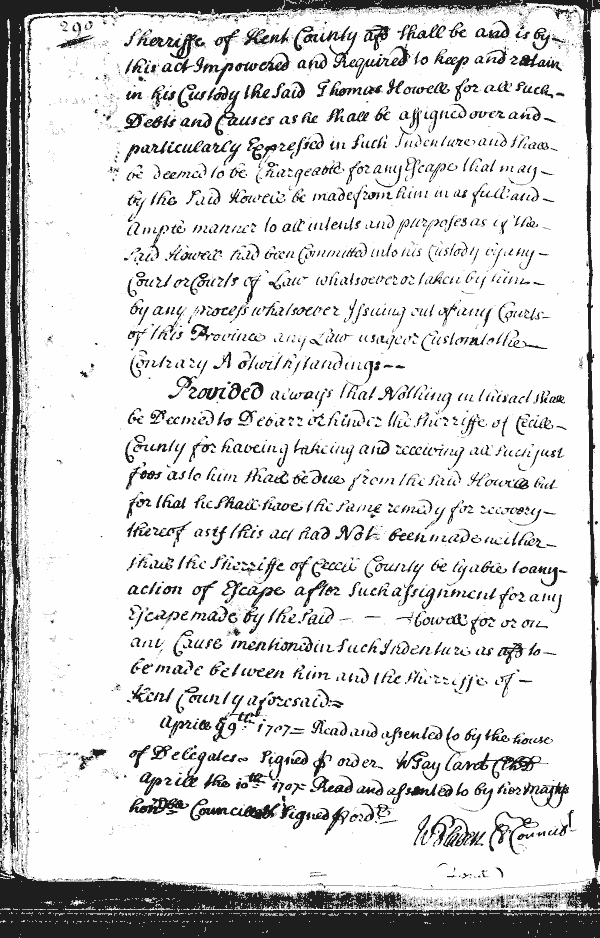 290
Sherriffe of Kent County afd shall be and is by
this act Impowered and Required to keep and retain
in his Custody the Said Thomas Howell for all Such
Debts and Causes as he Shall be assigned over and
particularly Expressed in Such Indenture and shall
be deemed to be Chargeable for any Escape that may
by the Said Howell be made from him in as full and
Ample manner to all intents and purposes as if the
Said Howell had been Committed into his Custody by any
Court or Courts of Law whatsoever or taken by him
by any process whatsoever Issuing out of any Courts
of this Province any Law usage or Custom to the
Contrary Notwithstanding:--
Provided always that Nothing in this act shall
be Deemed to Debarr or hinder the Sherriffe of Cecill
County for haveing takeing and receiving all Such just
fees as to him Shall be due from the Said Howell but
for that he Shall have the Same remedy for recovery
thereof as if this act had Not been made neither
shall the Sherriffe of Cecil County be lyable to any
action of Escape after Such assignment for any
Escape made by the Said - - Howell for or on
any Cause mentioned in Such Indenture as afd to
be made between him and the Sherriffe of
Kent County aforesaid
Aprill 9th 1707 Read and assented to by the house
of Delegates Signed p order W Tay Card
Aprill the 10th 1707 Read and assented to by her Majtys
honble Councill Signed p ordr
WBladen Cl Council